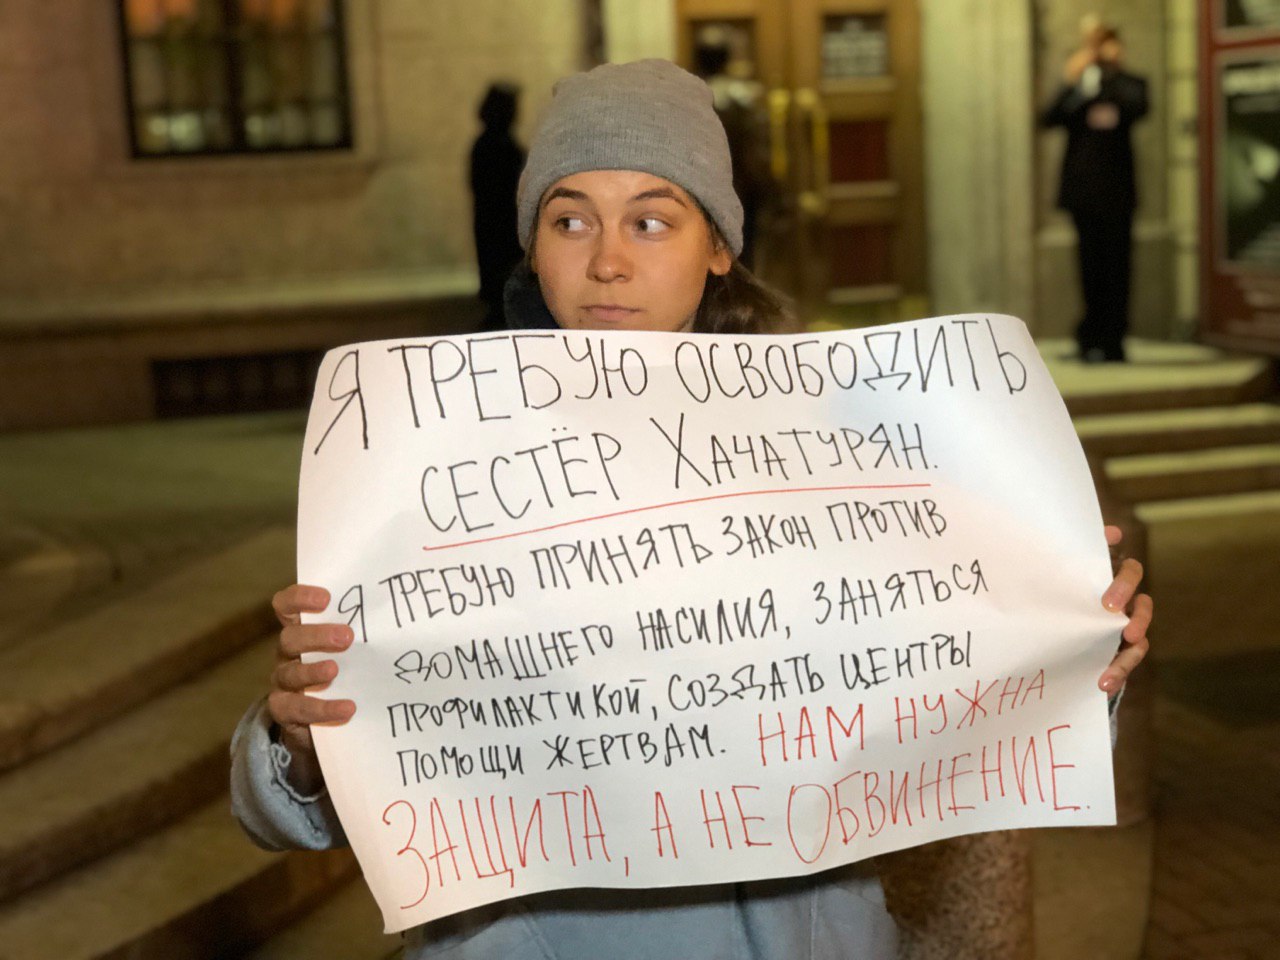 Я ТРЕБУЮ ОСВОБОДИТЬ
СЕСТЁР ХАЧАТУРЯН.
Я ТРЕБУЮ ПРИНЯТЬ ЗАКОН ПРОТИВ
ДОМАШНЕГО НАСИЛИЯ, ЗАНЯТЬСЯ
ПРОФИЛАКТИКОЙ, СОЗДАТЬ ЦЕНТРЫ
ПОМОЩИ ЖЕРТВАМ. НАМ НУЖНА
ЗАЩИТА, А НЕ ОБВИНЕНИЕ.